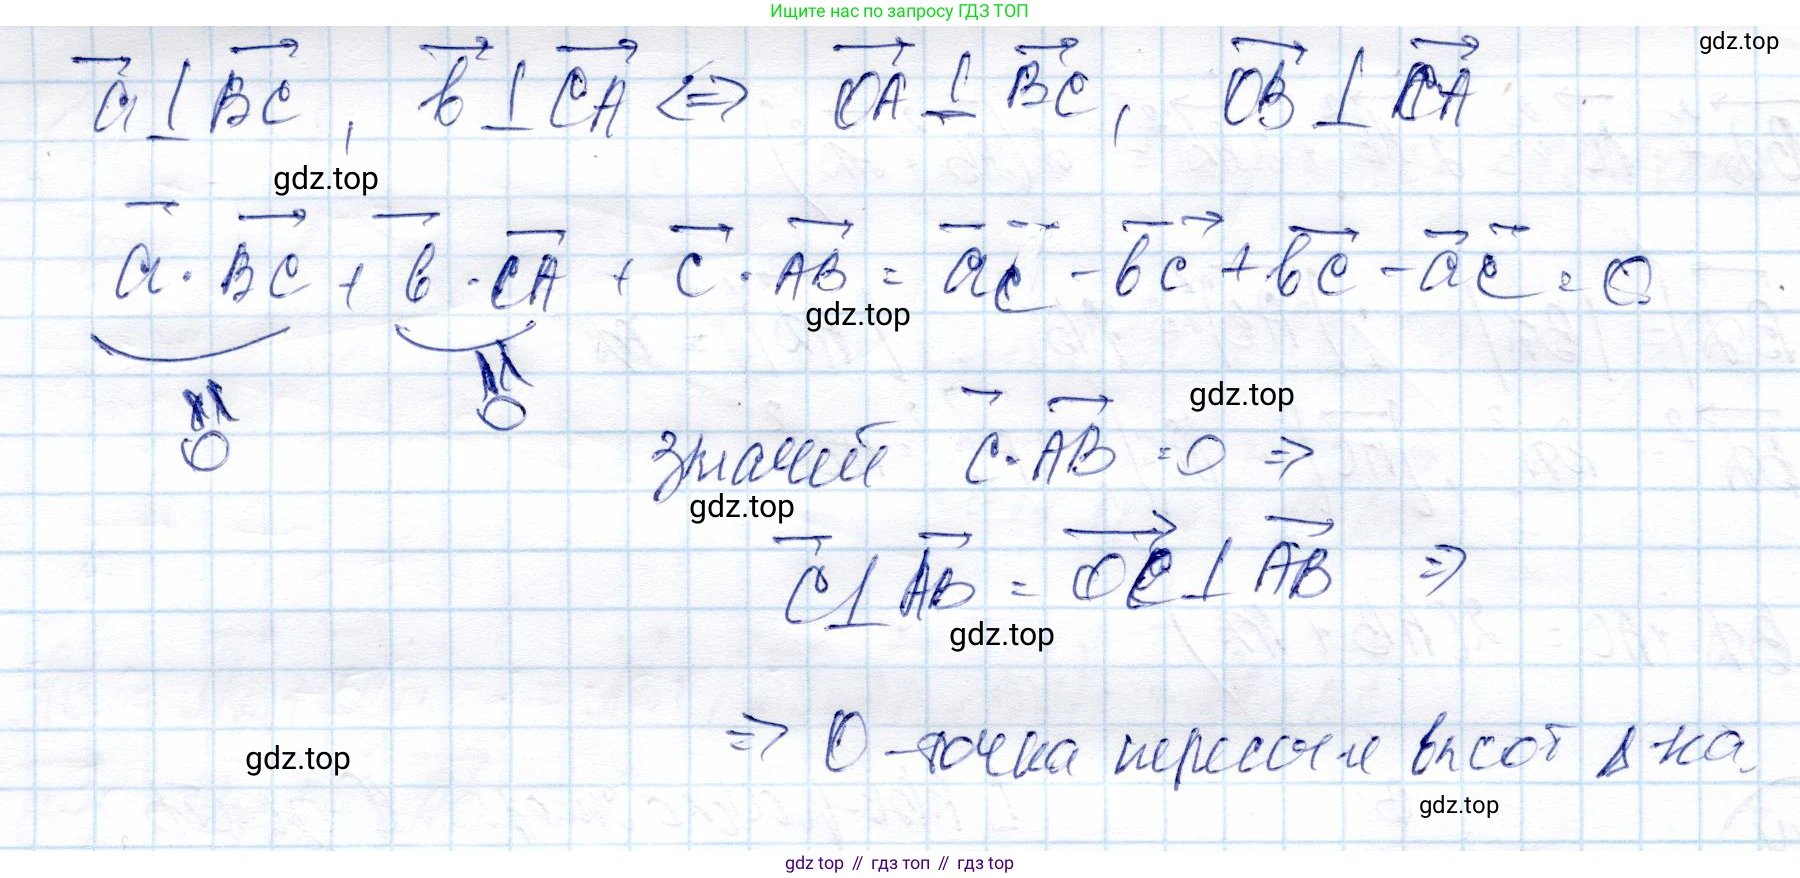 Ищите нас по запросу ГДЗ ТОП
gdz.top
a⃗ ⊥ B⃗C⃗, b⃗ ⊥ C⃗A⃗ <=> O⃗A⃗ ⊥ B⃗C⃗, O⃗B⃗ ⊥ C⃗A⃗
gdz.top
a⃗ · B⃗C⃗ + b⃗ · C⃗A⃗ + c⃗ · A⃗B⃗ = a⃗c⃗ - b⃗c⃗ + b⃗c⃗ - a⃗c⃗ = 0
gdz.top
= 0 = 0
gdz.top
значит c⃗ · A⃗B⃗ = 0 =>
gdz.top
c⃗ ⊥ A⃗B⃗ = O⃗C⃗ ⊥ A⃗B⃗ =>
gdz.top
=> O - точка пересеч-е высот Δ-ка.
gdz.top
gdz.top
gdz top // гдз топ // гдз top